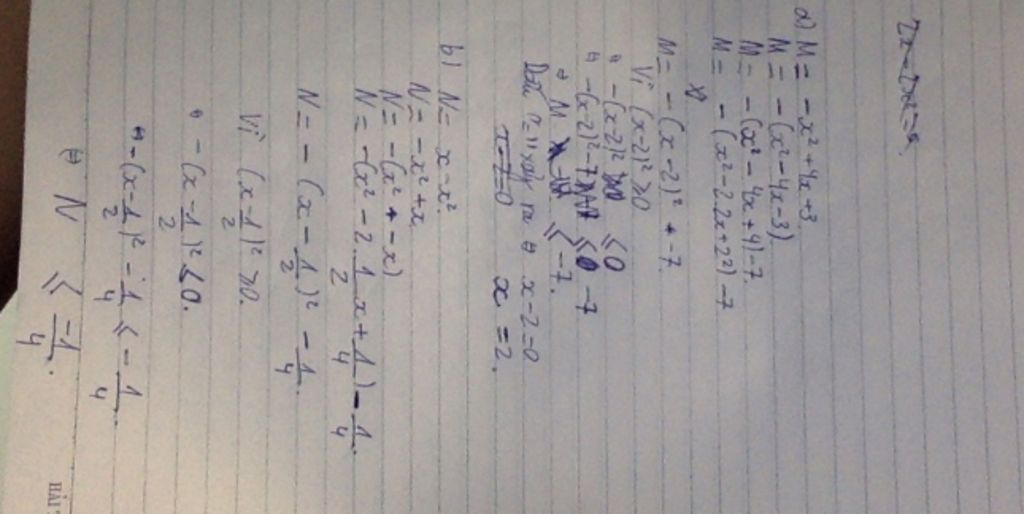 a) M = -x² + 4x + 3
M = -(x² - 4x - 3)
M = -(x² - 4x + 4) - 7
M = -(x² - 2.2x + 2²) - 7
M = -(x - 2)² + -7
Vì (x-2)² ≥ 0
-(x-2)² ≤ 0
-(x-2)² - 7 ≤ 0 - 7
⇔ M ≤ -7.
Dấu "=" xảy ra ⇔ x - 2 = 0
x = 2.
b) N = x - x²
N = -x² + x
N = -(x² - x)
N = -(x² - 2 1/2 x + 1/4) - 1/4
N = -(x - 1/2)² - 1/4
Vì (x - 1/2)² ≥ 0.
-(x - 1/2)² ≤ 0.
-(x - 1/2)² - 1/4 ≤ - 1/4
⇔ N ≤ -1/4.